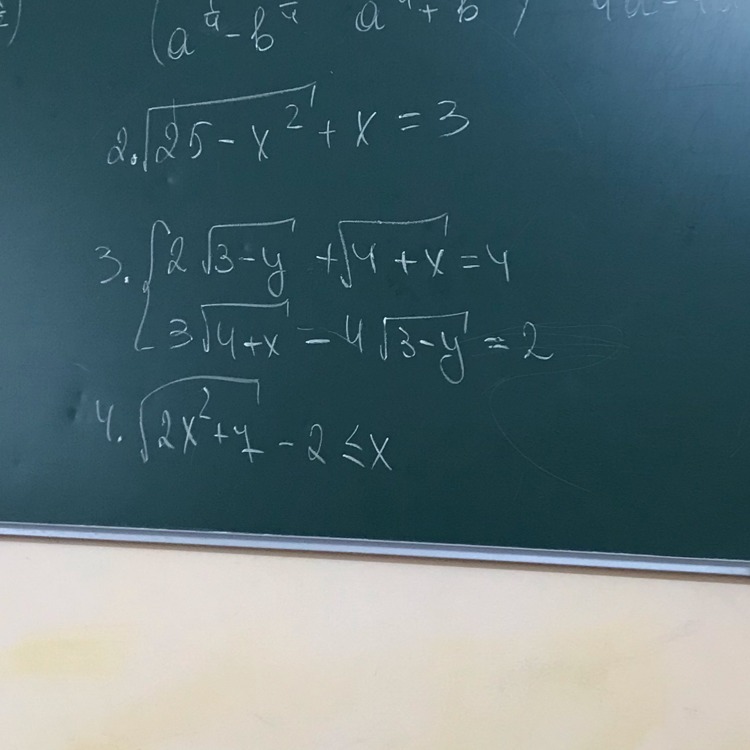 (a^{1/4} - b^{1/4}
2. √(25 - x²) + x = 3
3. { 2√(3-y) + √(4+x) = 4
3√(4+x) - 4√(3-y) = 2
4. √(2x²+7) - 2 ≤ x